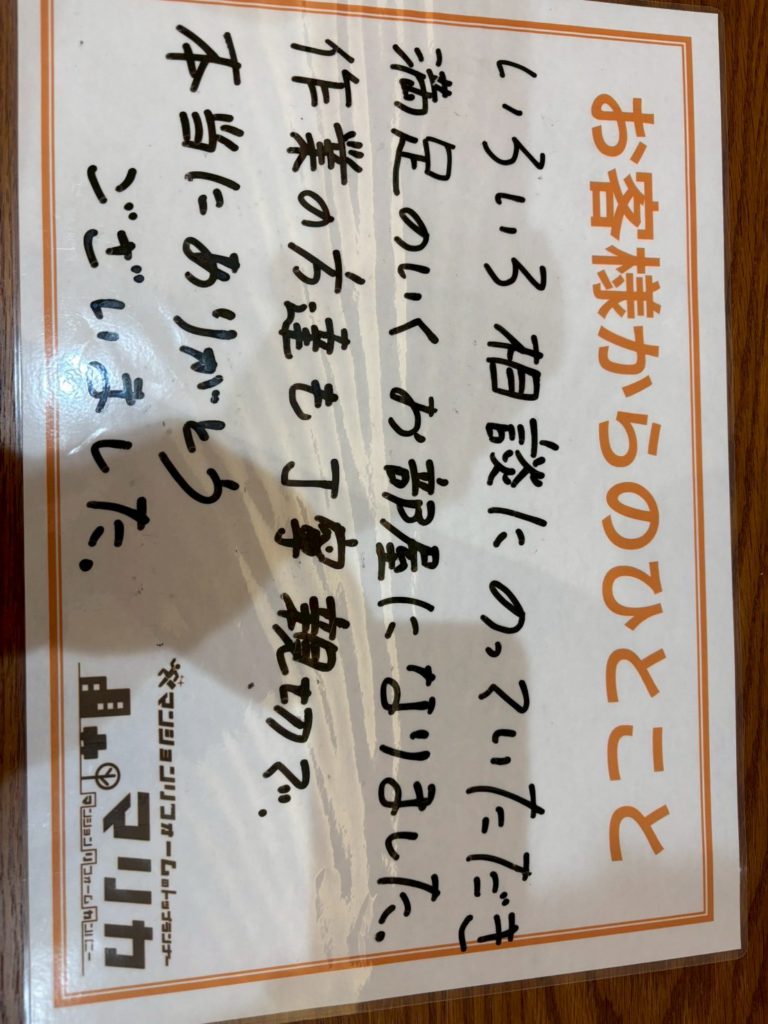 お客様からのひとこと
いろいろ相談にのっていただき
満足のいくお部屋になりました.
作業の方達も丁寧親切で.
本当にありがとう
ございました.
マンションリフォームのトップランナー
マリカ
マンションリフォームカンパニー